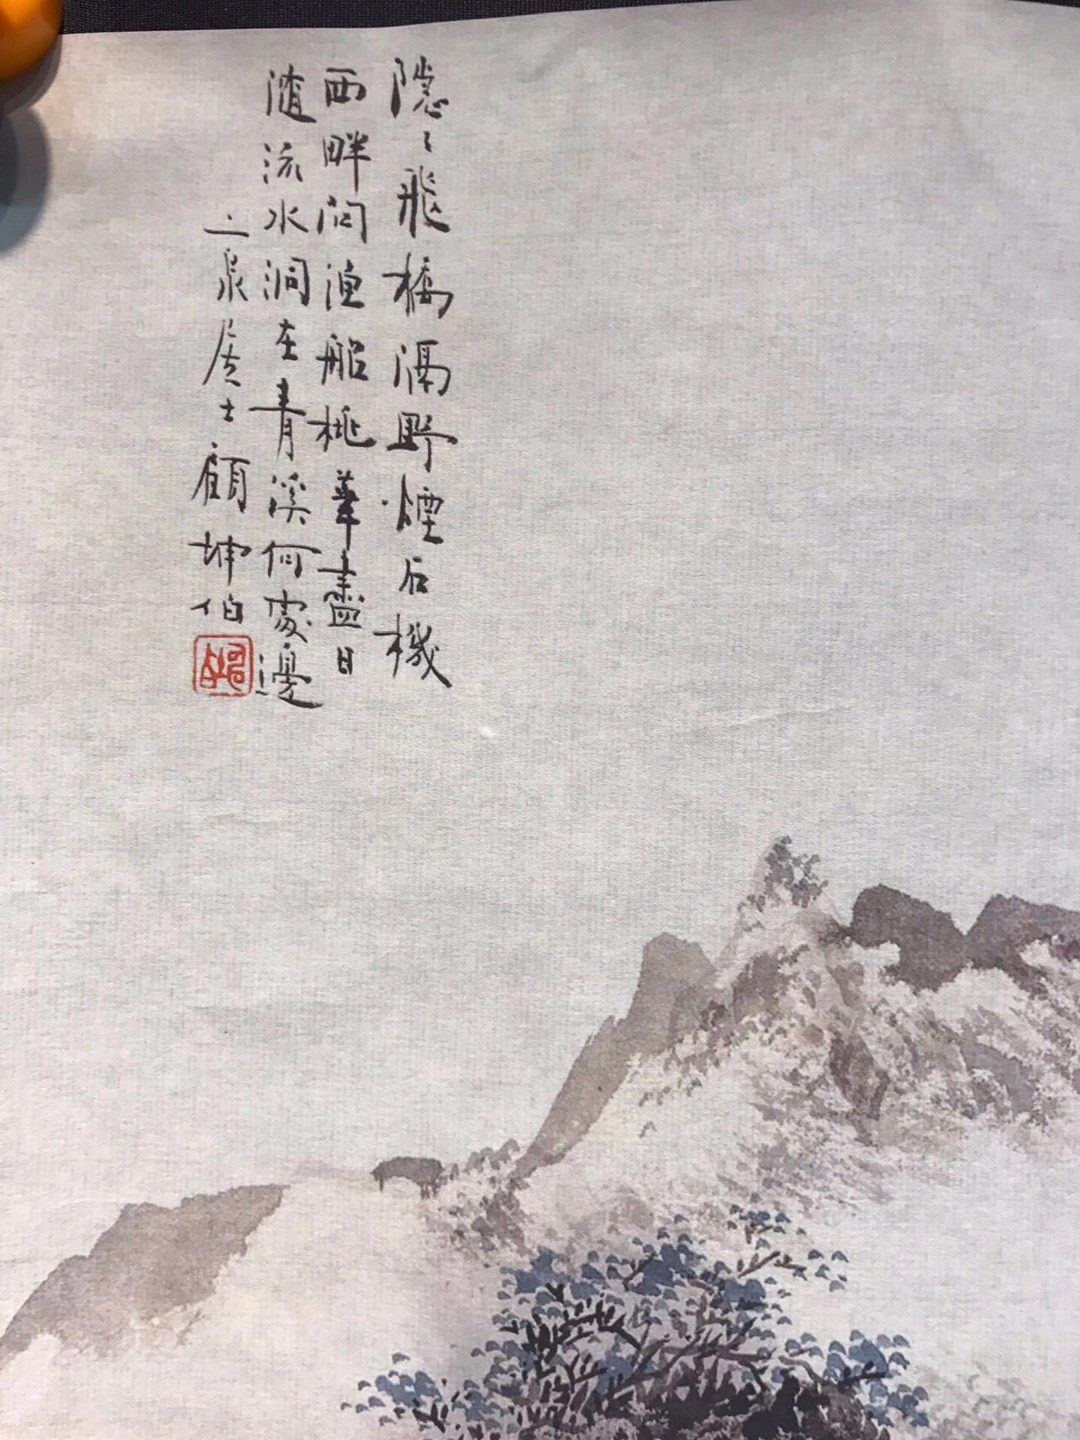 隱〻飛橋隔野煙石機
西畔问漁船桃華盡日
隨流水洞在青溪何處邊
二泉居士顧坤伯